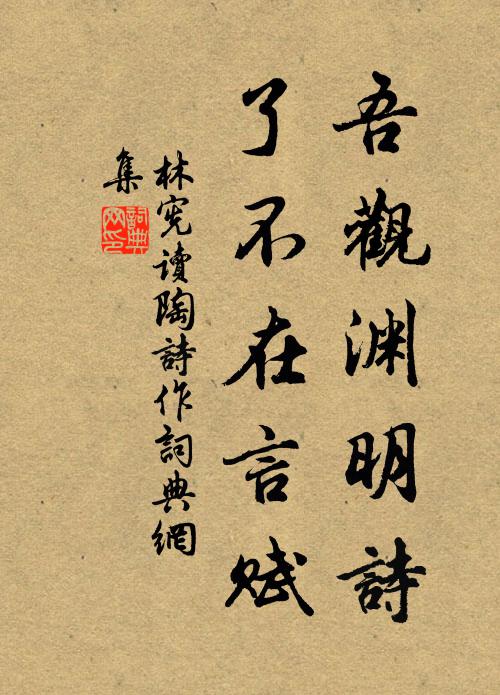 吾觀渊明詩
了不在言赋
林宪讀陶詩作詞典網
集
詞典
网印